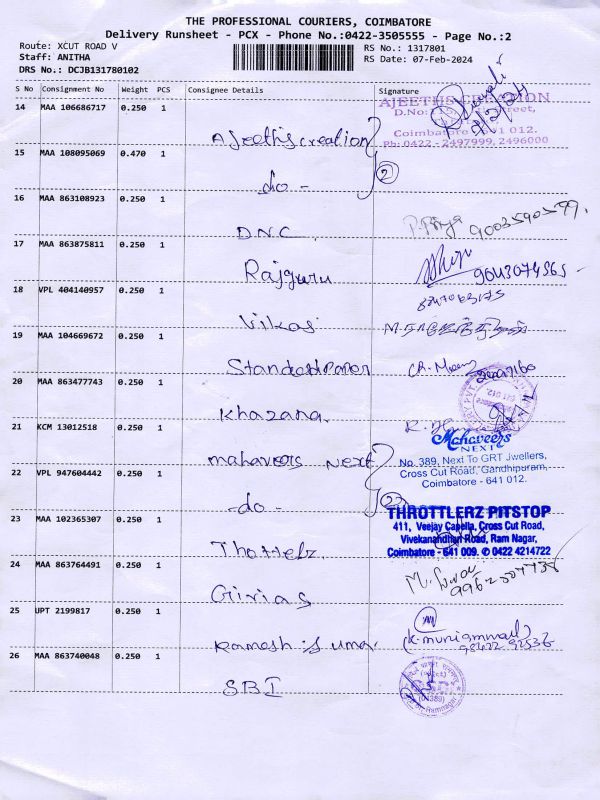 THE PROFESSIONAL COURIERS, COIMBATORE
Delivery Runsheet - PCX - Phone No.:0422-3505555 - Page No.:2
Route: XCUT ROAD V
RS No.: 1317801
Staff: ANITHA
RS Date: 07-Feb-2024
DRS No.: DCJB131780102
S No Consignment No Weight PCS Consignee Details Signature
14 MAA 106686717 0.250 1
Ajeeth's creation
AJEETHS CREATION
Coimbatore 641 012.
Ph: 0422 - 2497999, 2496000
15 MAA 108095069 0.470 1
do - 2
16 MAA 863108923 0.250 1
D.N.C. P. Priya 9003590599.
17 MAA 863875811 0.250 1
Rajguru 9043074565 -
18 VPL 404140957 0.250 1
Vikas
19 MAA 104669672 0.250 1
20 MAA 863477743 0.250 1
Khazana.
21 KCM 13012518 0.250 1
mahaveers Next
Mahaveers
NEXT
No. 389, Next To GRT Jwellers,
Cross Cut Road, Gandhipuram,
Coimbatore - 641 012.
22 VPL 947604442 0.250 1
-do-
23 MAA 102365307 0.250 1
THROTTLERZ PITSTOP
411, Veejay Capella, Cross Cut Road,
Vivekanandhan Road, Ram Nagar,
Coimbatore - 641 009. ✆ 0422 4214722
24 MAA 863764491 0.250 1
Girias
25 UPT 2199817 0.250 1
26 MAA 863740048 0.250 1
SBI